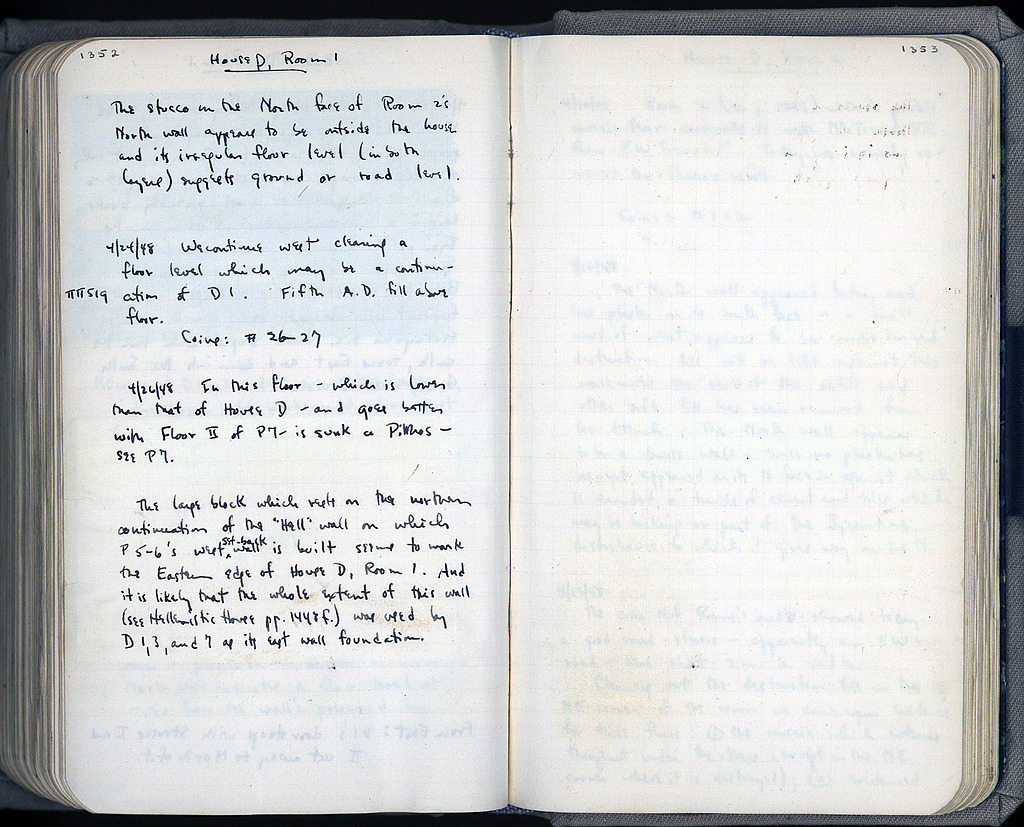 1352
House D, Room 1
The stucco on the North face of Room 2's
North wall appears to be outside the house
and its irregular floor level (in both
layers) suggests ground or road level.
4/24/48 We continue west clearing a
floor level which may be a continu-
ΠΠ519 ation of D 1. Fifth A.D. fill above
floor.
Coins: # 26-27
4/26/48 In this floor - which is lower
than that of House D - and goes better
with Floor II of P7 - is sunk a Pithos -
see P7.
The large block which rests on the northern
continuation of the "Hell" wall on which
P 5-6's west set-back wall is built seems to mark
the Eastern edge of House D, Room 1. And
it is likely that the whole extent of this wall
(see Hellenistic House pp. 1448f.) was used by
D 1, 3, and 7 as its east wall foundation.
1353